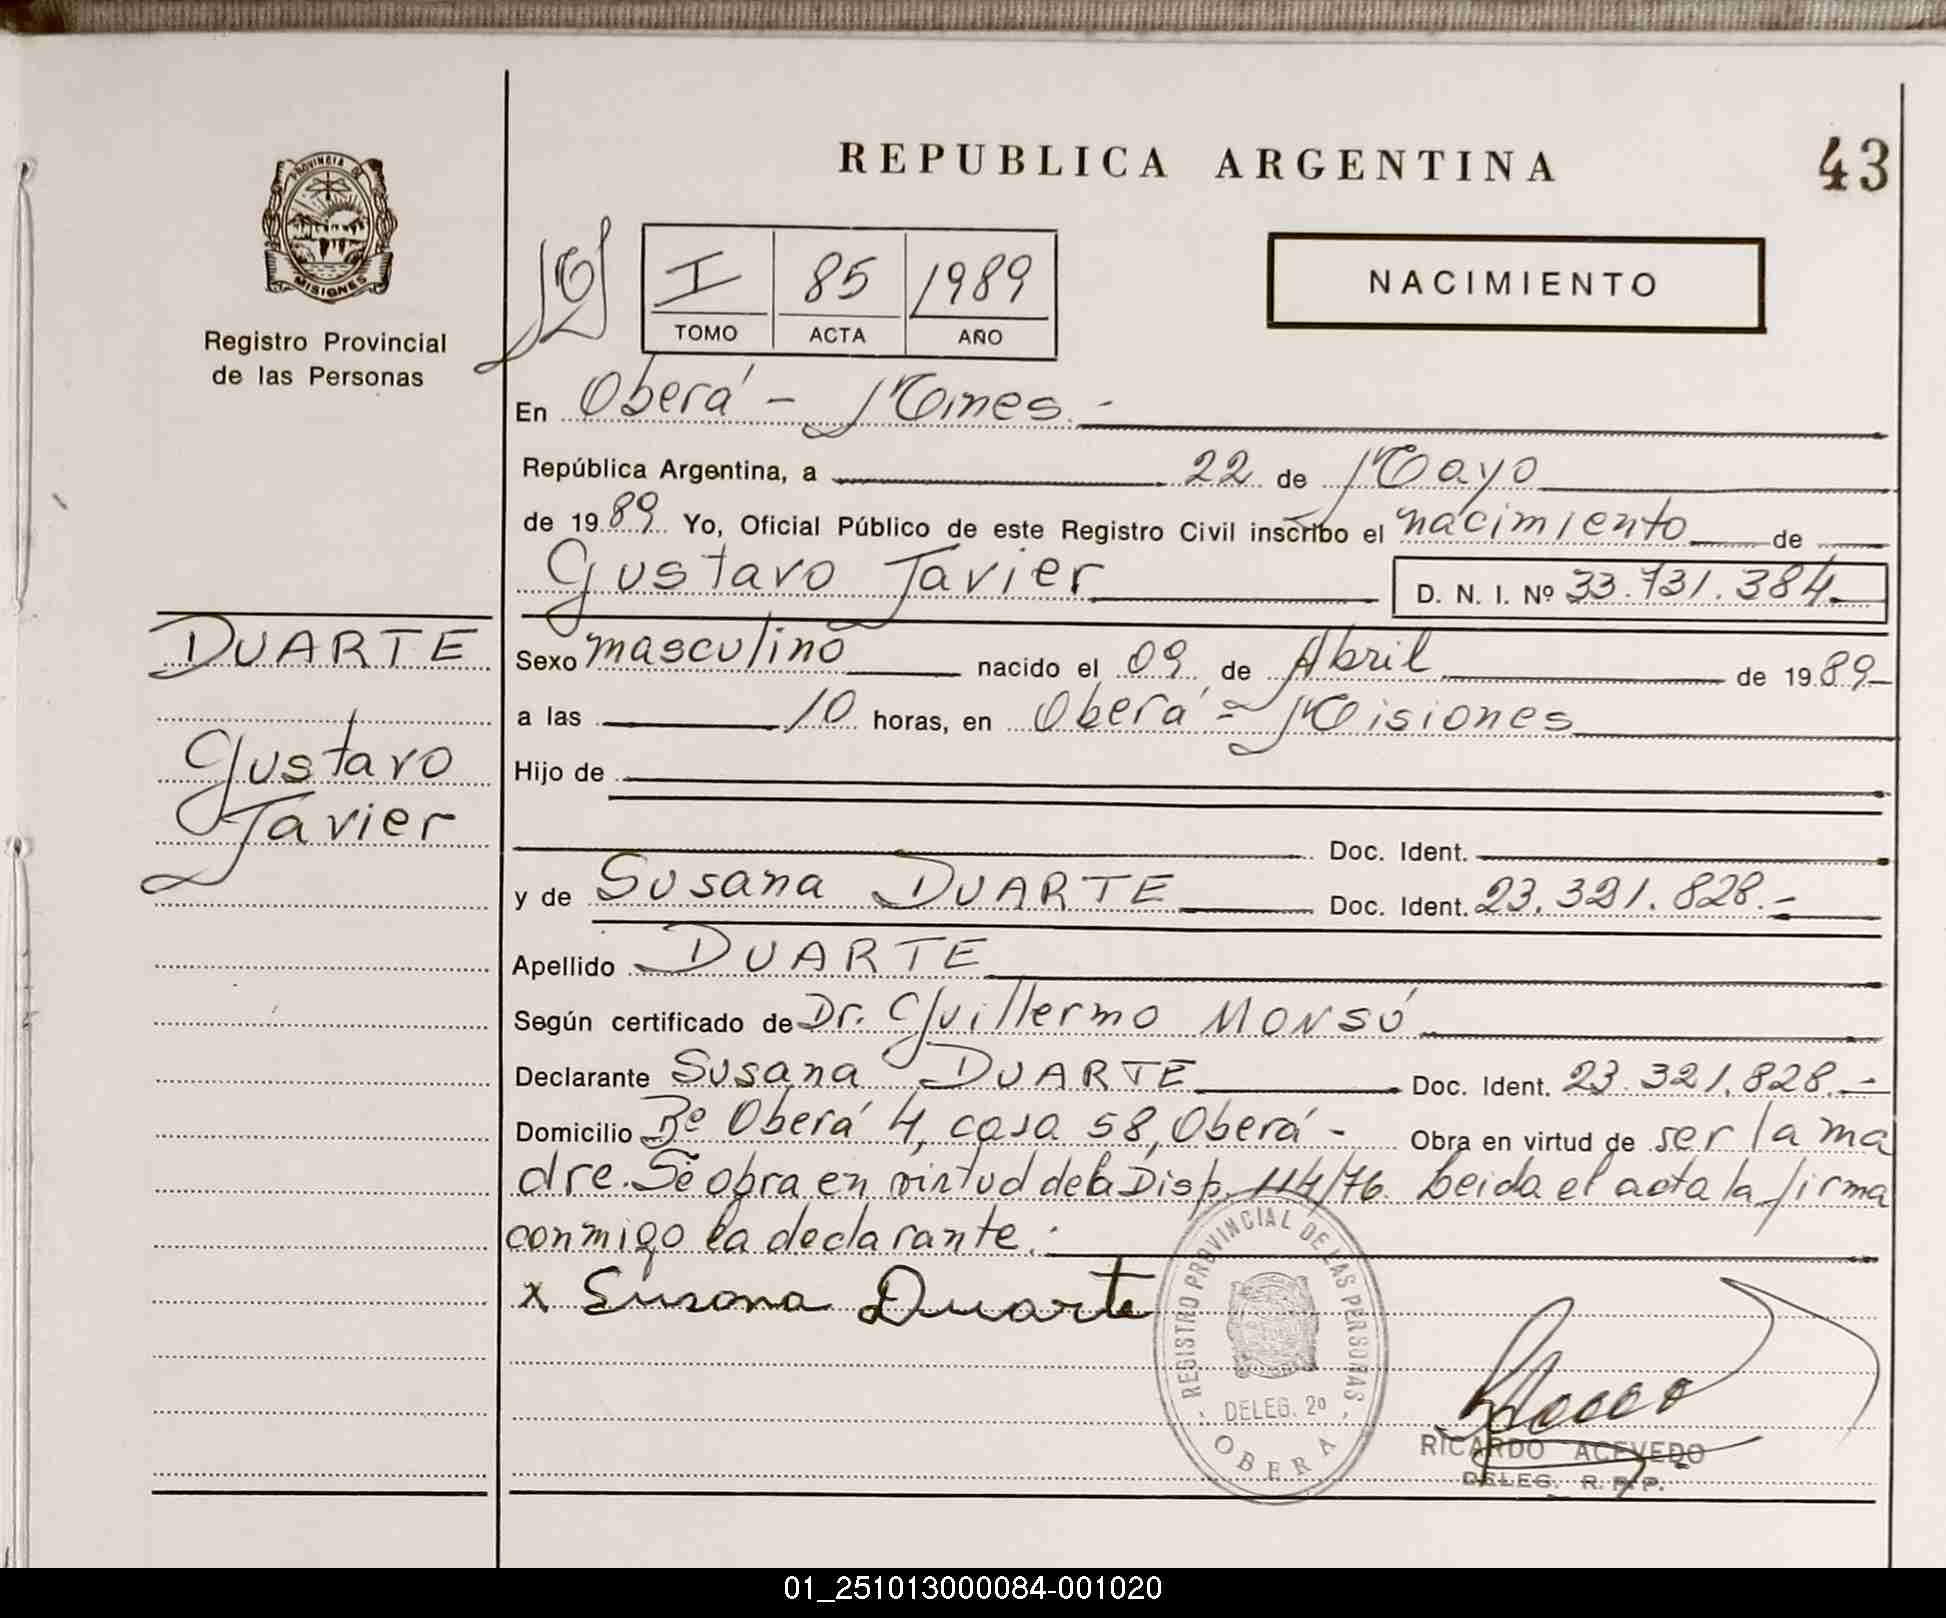 REPUBLICA ARGENTINA
43
PROVINCIA DE
MISIONES
Registro Provincial
de las Personas
I 85 1989
TOMO ACTA AÑO
NACIMIENTO
En Oberá - Mnes. -
República Argentina, a 22 de Mayo
de 1989 Yo, Oficial Público de este Registro Civil inscribo el nacimiento de
Gustavo Javier D. N. I. Nº 33.731.384
DUARTE
Gustavo
Javier
Sexo masculino nacido el 09 de Abril de 1989
a las 10 horas, en Oberá = Misiones
Hijo de
Doc. Ident.
y de Susana DUARTE Doc. Ident. 23.321.828.-
Apellido DUARTE
Según certificado de Dr. Guillermo MONSÓ
Declarante Susana DUARTE Doc. Ident. 23.321.828.-
Domicilio Bº Oberá 4, casa 58, Oberá - Obra en virtud de ser la ma
dre. Se obra en virtud de la Disp. 114/76. Leida el acta la firma
conmigo la declarante.-
x Susana Duarte
REGISTRO PROVINCIAL DE LAS PERSONAS
DELEG. 2º
OBERA
RICARDO ACEVEDO
DELEG. R. P. P.
01_251013000084-001020